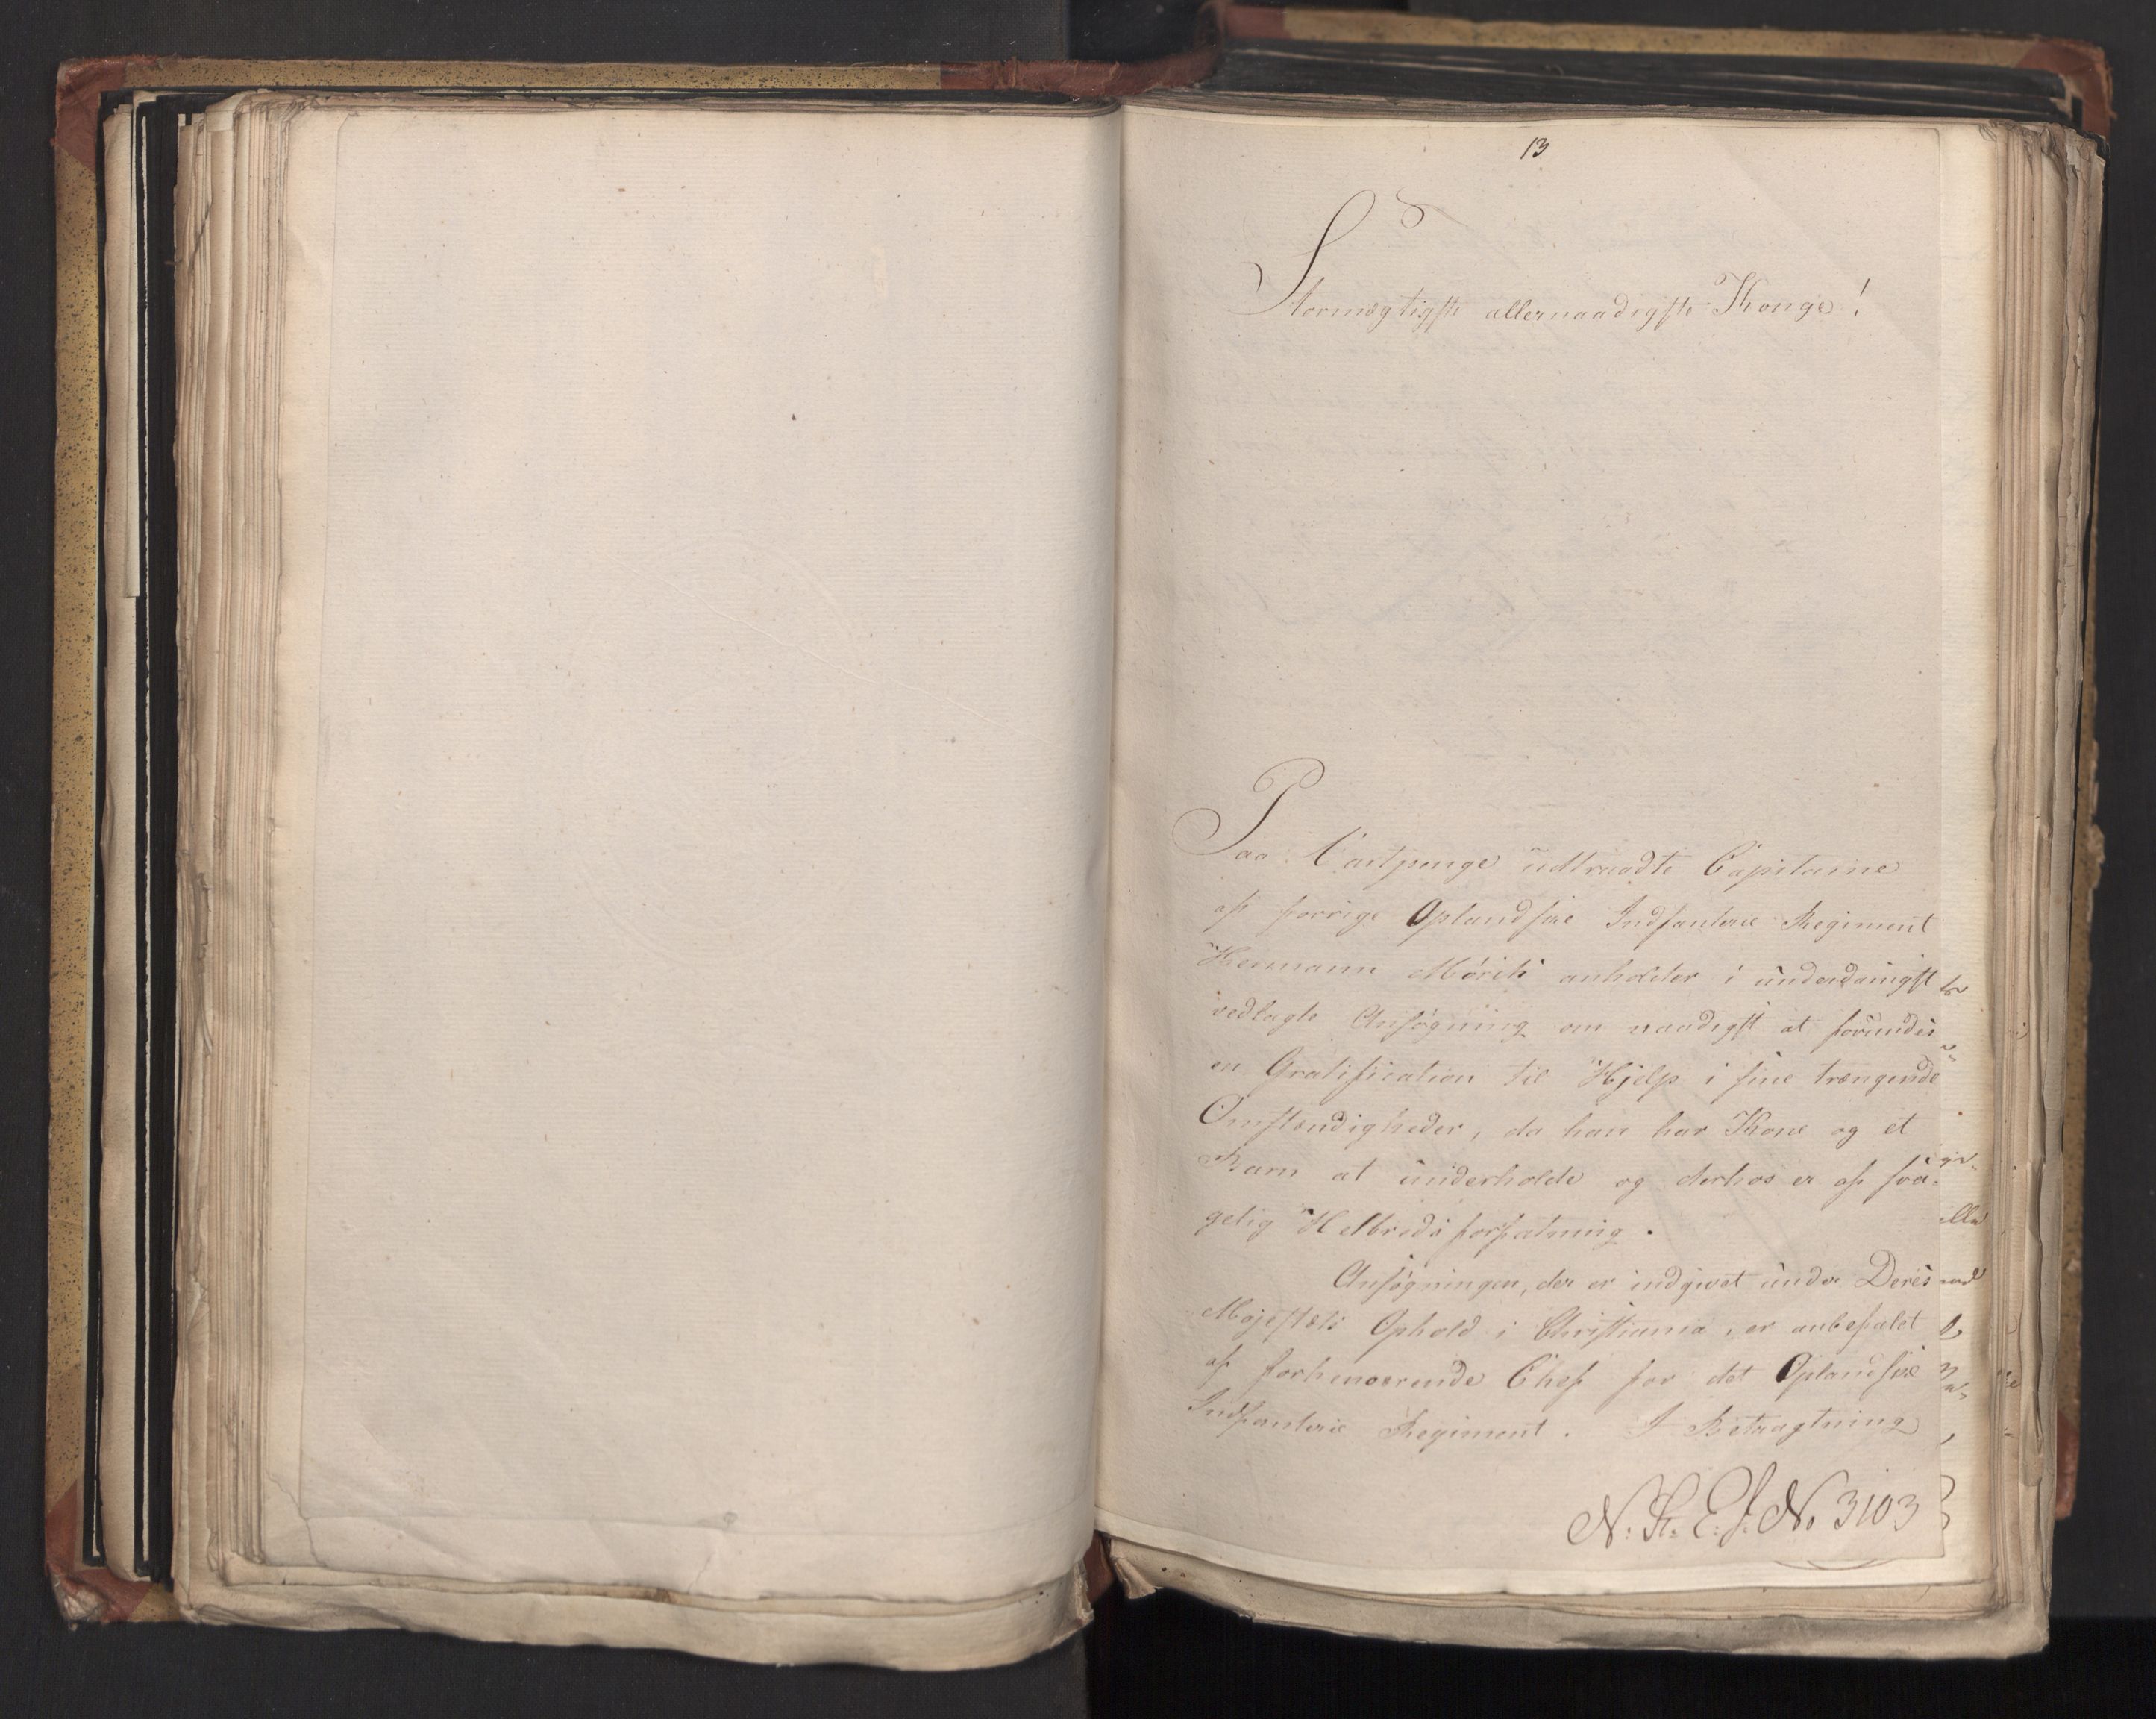 13
Stormægtigste allernaadigste Konge!
Paa Vartpenge udtraadte Capitaine
af forrige Oplandske Indfanterie Regiment
Hermann anholder i underdanigst
vedlagte Ansøgning om naadigst at forundes
en Gratification til Hjelp i sine trængende
Omstændigheder, da han har Kone og et
Barn at underholde og derhos er af sva-
gelig Helbreds forfatning.
Ansøgningen, der er indgivet under Deres
Majestæts Ophold i Christiania, er anbefalet
af forhenværende Chef for det Oplandske
Indfanterie Regiment. I Betragtning
N: R: E: J: No 3103